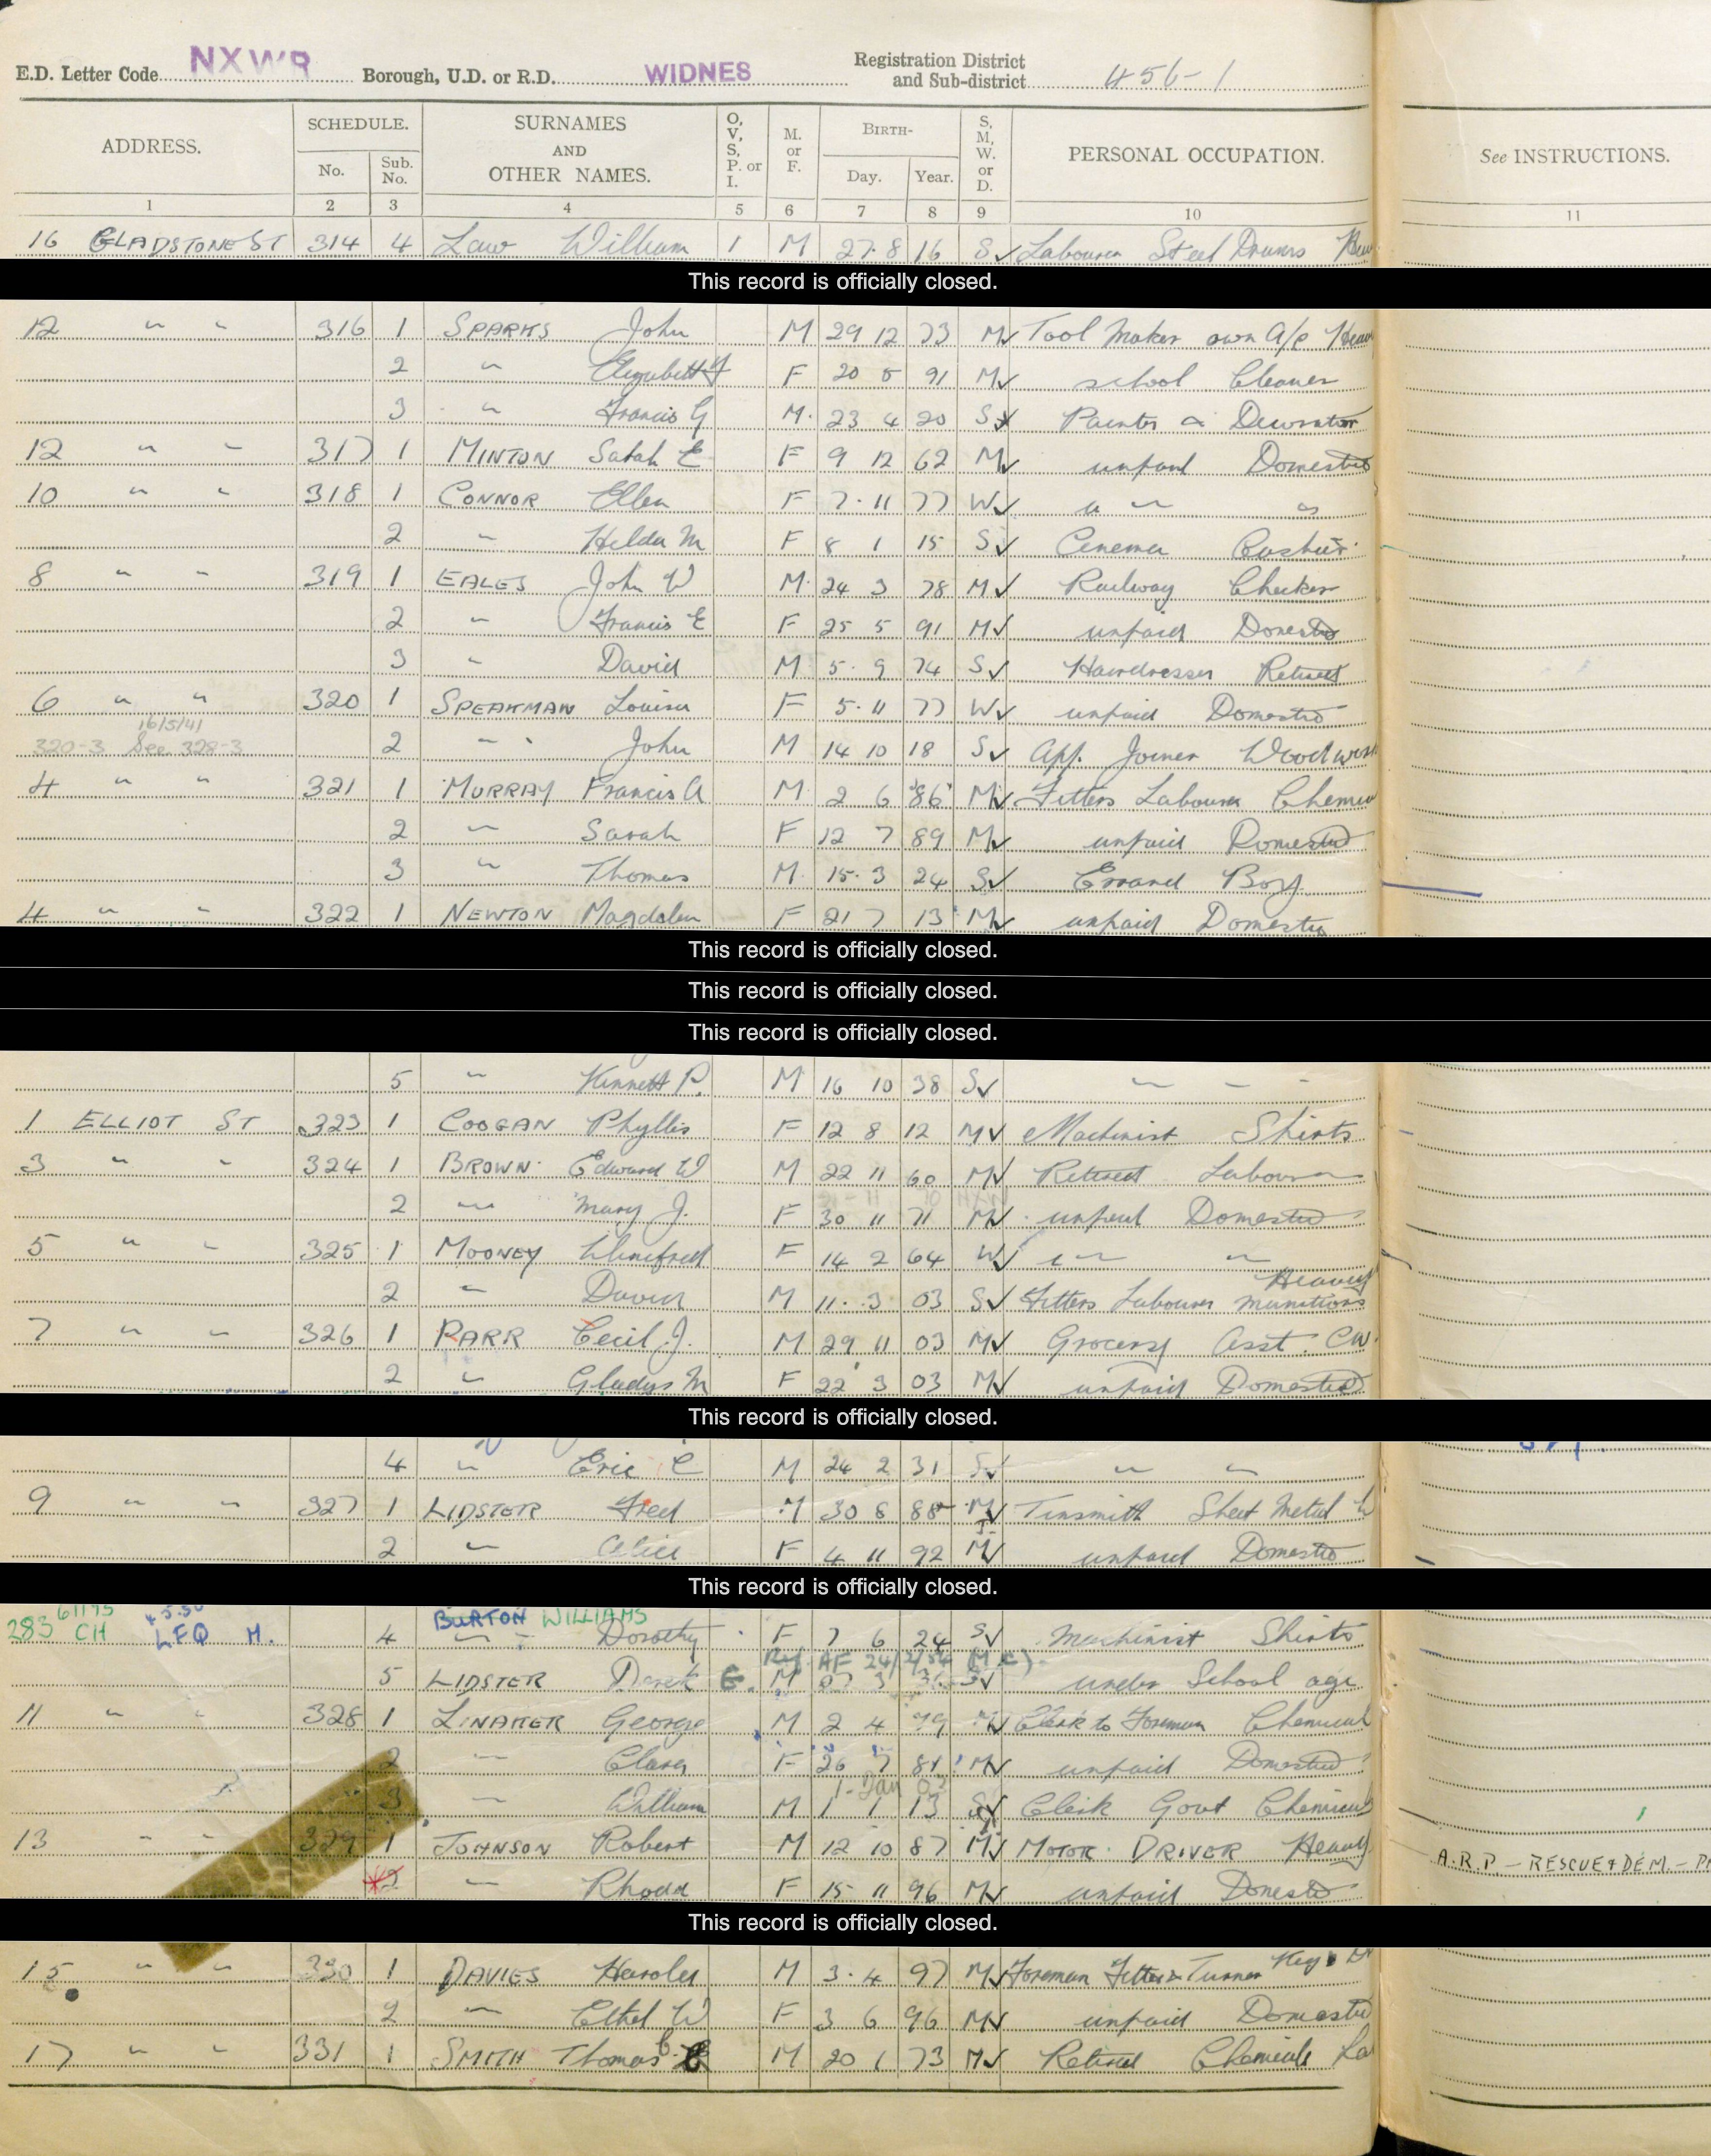 E.D. Letter Code NXWR Borough, U.D. or R.D. WIDNES Registration District and Sub-district 456-1
ADDRESS. SCHEDULE. No. Sub. No. SURNAMES AND OTHER NAMES. O, V, S, P. or I. M. or F. BIRTH- Day. Year. S, M, W. or D. PERSONAL OCCUPATION. See INSTRUCTIONS.
1 2 3 4 5 6 7 8 9 10 11
16 GLADSTONE ST 314 4 Law William 1 M 27.8 16 S Labourer Steel Drums
This record is officially closed.
12 " " 316 1 SPARKS John M 29 12 73 M Tool Maker own A/c
2 " Elizabeth F 20 5 91 M school Cleaner
3 " Francis G M 23 4 20 S Painter & Decorator
12 " " 317 1 MINTON Sarah E F 9 12 62 M unpaid Domestic
10 " " 318 1 CONNOR Ellen F 7.11 77 W " " "
2 " Hilda M F 8 1 15 S Cinema Cashier
8 " " 319 1 EALES John W M 24 3 78 M Railway Checker
2 " Francis E F 25 5 91 M unpaid Domestic
3 " David M 5.9 74 S Hairdresser Retired
6 " " 320 1 SPEAKMAN Louisa F 5.11 77 W unpaid Domestic
16/5/41
320-3 See 328-3 2 " John M 14 10 18 S App. Joiner Woodwork
4 " " 321 1 MURRAY Francis A M 2 6 86 M Fitters Labourer Chemical
2 " Sarah F 12 7 89 M unpaid Domestic
3 " Thomas M 15.3 24 S Errand Boy
4 " " 322 1 NEWTON Magdalen F 21 7 13 M unpaid Domestic
This record is officially closed.
This record is officially closed.
This record is officially closed.
5 " Kennett P. M 16 10 38 S " - -
1 ELLIOT ST 323 1 COOGAN Phyllis F 12 8 12 M Machinist Shirts
3 " " 324 1 BROWN Edward W M 22 11 60 M Retired Labourer
2 " Mary J. F 30 11 71 M unpaid Domestic
5 " " 325 1 MOONEY Winefred F 14 2 64 W " "
2 " David M 11.3 03 S Fitters Labourer Heavy Munitions
7 " " 326 1 PARR Cecil J. M 29 11 03 M Grocery Asst. CW
2 " Gladys M F 22 3 03 M unpaid Domestic
This record is officially closed.
4 " Eric C M 24 2 31 S " "
9 " " 327 1 LIDSTER Fred M 30 8 88 M Tinsmith Sheet Metal W
2 " Alice F 4 11 92 M unpaid Domestic
This record is officially closed.
BURTON WILLIAMS
283 CH LFQ M. 4 " Dorothy F 7 6 24 S Machinist Shirts
5 LIDSTER Derek M S under School age
11 " " 328 1 LINAKER George M 2 4 79 M Clerk to Foreman Chemical
2 " Clara F 26 7 81 M unpaid Domestic
1-Jan
3 " William M 1 1 13 S Clerk Govt Chemical
13 " " 329 1 JOHNSON Robert M 12 10 87 M MOTOR DRIVER Heavy A.R.P - RESCUE & DEM. -
2 " Rhoda F 15 11 96 M unpaid Domestic
This record is officially closed.
15 " " 330 1 DAVIES Harold M 3.4 97 M Foreman Fitter & Turner
2 " Ethel W F 3 6 96 M unpaid Domestic
17 " " 331 1 SMITH Thomas C M 20 1 73 M Retired Chemicals La